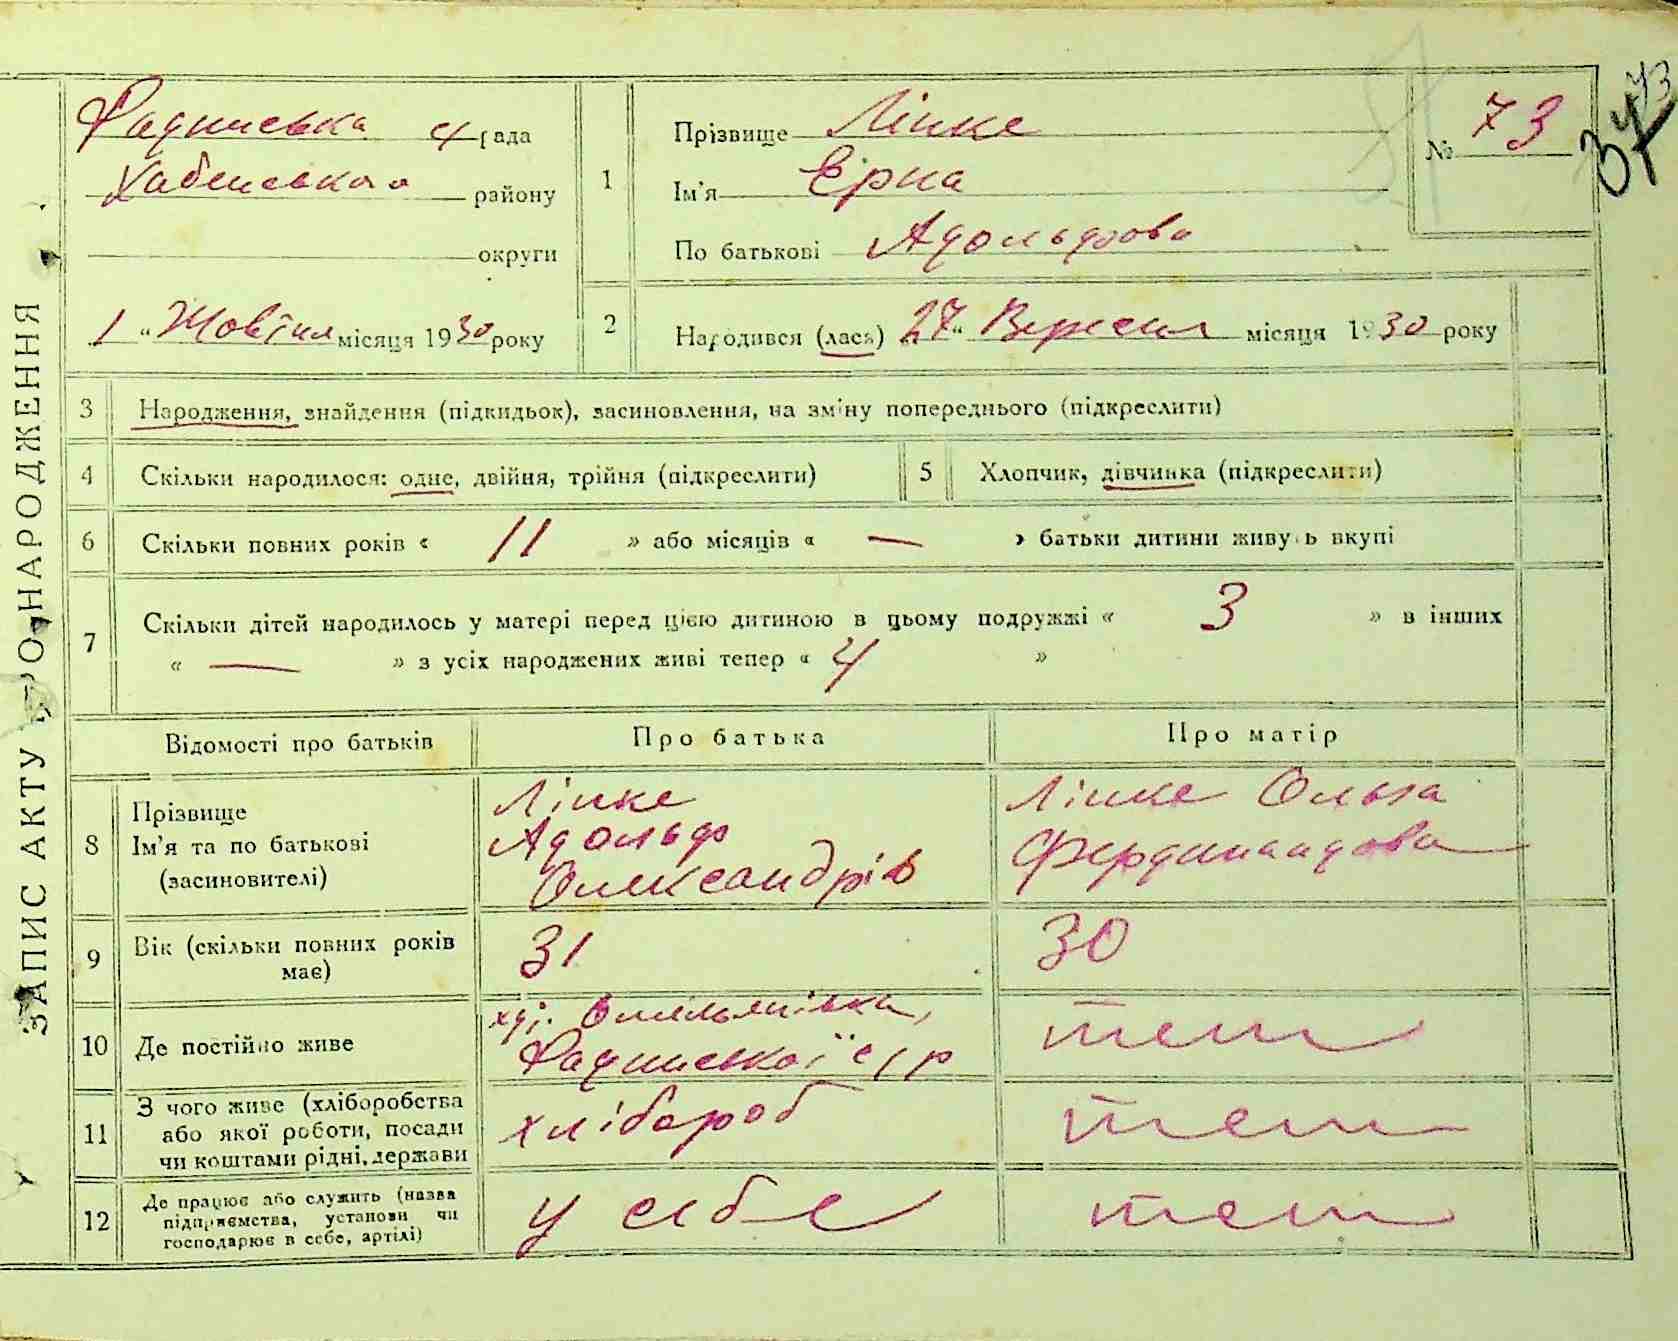 ЗАПИС АКТУ ПРО НАРОДЖЕННЯ
рада
Хабенського району
округи
1 " Жовтня місяця 1930 року
1
Прізвище Ліпке
Ім'я Ерна
По батькові Адольфова
№ 73
73
2
Народився (лася) 27 " Вересня місяця 1930 року
3 Народження, знайдення (підкидьок), засиновлення, на зміну попереднього (підкреслити)
4 Скільки народилося: одне, двійня, трійня (підкреслити)
5 Хлопчик, дівчинка (підкреслити)
6 Скільки повних років « 11 » або місяців « — » батьки дитини живуть вкупі
7 Скільки дітей народилось у матері перед цією дитиною в цьому подружжі « 3 » в інших
« — » з усіх народжених живі тепер « 4 »
Відомості про батьків
Про батька
Про матір
8 Прізвище
Ім'я та по батькові
(засиновителі)
Ліпке
Адольф
Олександрів
Ліпке Ольга
Фердинандова
9 Вік (скільки повних років
має)
31
30
10 Де постійно живе
Омельянівка,
теж
11 З чого живе (хліборобства
або якої роботи, посади
чи коштами рідні, держави
хлібороб
теж
12 Де працює або служить (назва
підприємства, установи чи
господарює в себе, артілі)
у себе
теж